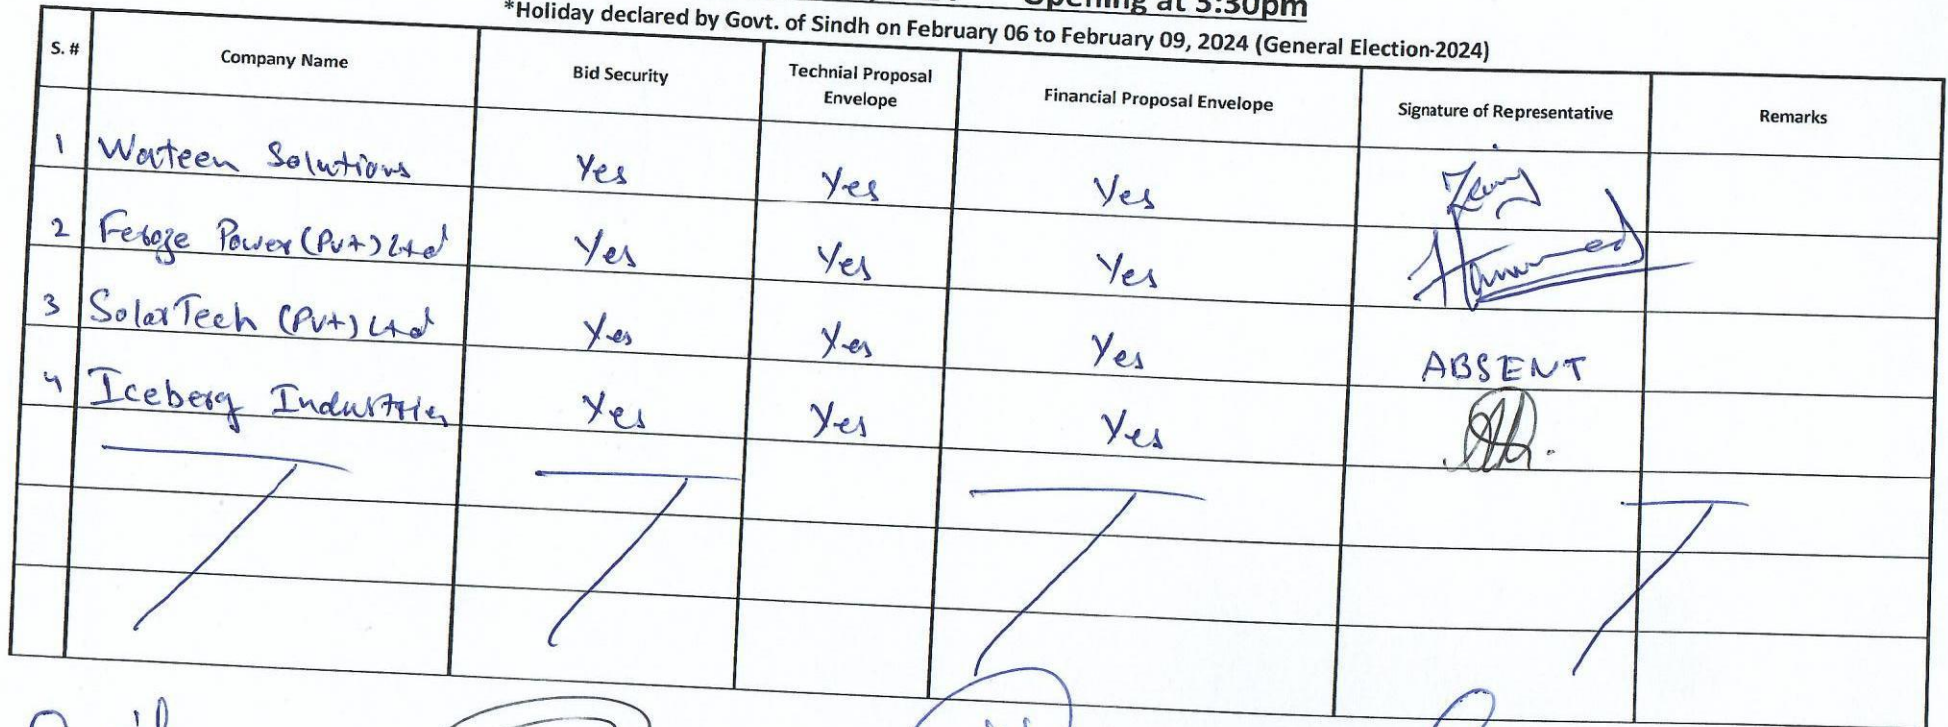 Opening at 3:30pm
*Holiday declared by Govt. of Sindh on February 06 to February 09, 2024 (General Election-2024)
S. # Company Name Bid Security Technial Proposal Envelope Financial Proposal Envelope Signature of Representative Remarks
1 Wateen Solutions Yes Yes Yes
2 Feroze Power (Pvt) Ltd Yes Yes Yes Hammed
3 SolarTech (Pvt) Ltd Yes Yes Yes ABSENT
4 Iceberg Industries Yes Yes Yes